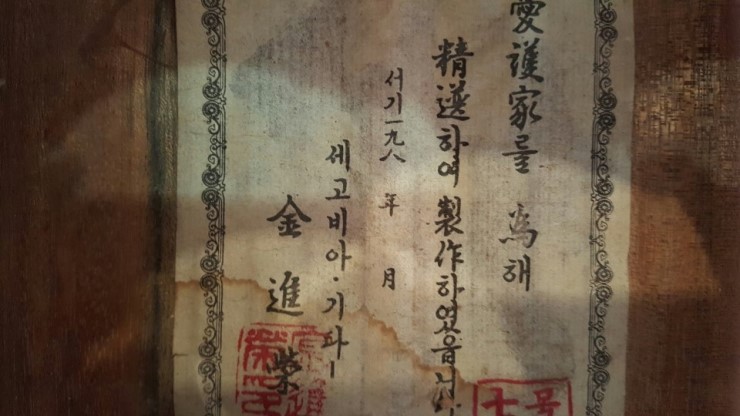 愛護家를 爲해
精選하여 製作하였읍니다
서기一九八 年 月
세고비아·기타ー
金 進 榮